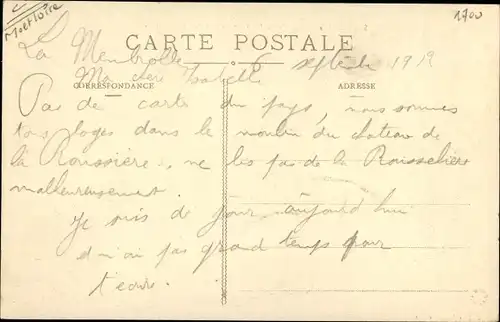 M et Loire
1700
CARTE POSTALE
La Membrolle 6 septembre 1912
Ma chère Isabelle
CORRESPONDANCE
ADRESSE
Pas de carte du pays, nous sommes
tous logés dans le moulin du chateau de
la Roussière, ne les pas de la Rousselière
malheureusement.
Je suis de jour aujourd'hui
et n'ai pas grand temps pour
t'écrire.